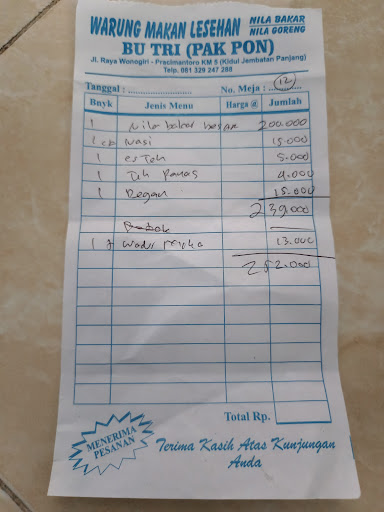 WARUNG MAKAN LESEHAN NILA BAKAR NILA GORENG
BU TRI (PAK PON)
Jl. Raya Wonogiri - Pracimantoro KM 5 (Kidul Jembatan Panjang)
Telp. 081 329 247 288
Tanggal : ........................ No. Meja : 12
Bnyk Jenis Menu Harga @ Jumlah
1 Nila bakar besar 200.000
1 cb Nasi 15.000
1 es Teh 5.000
1 Teh Panas 4.000
1 Degan 15.000
239.000
1 13.000
252.000
Total Rp.
MENERIMA PESANAN
Terima Kasih Atas Kunjungan
Anda